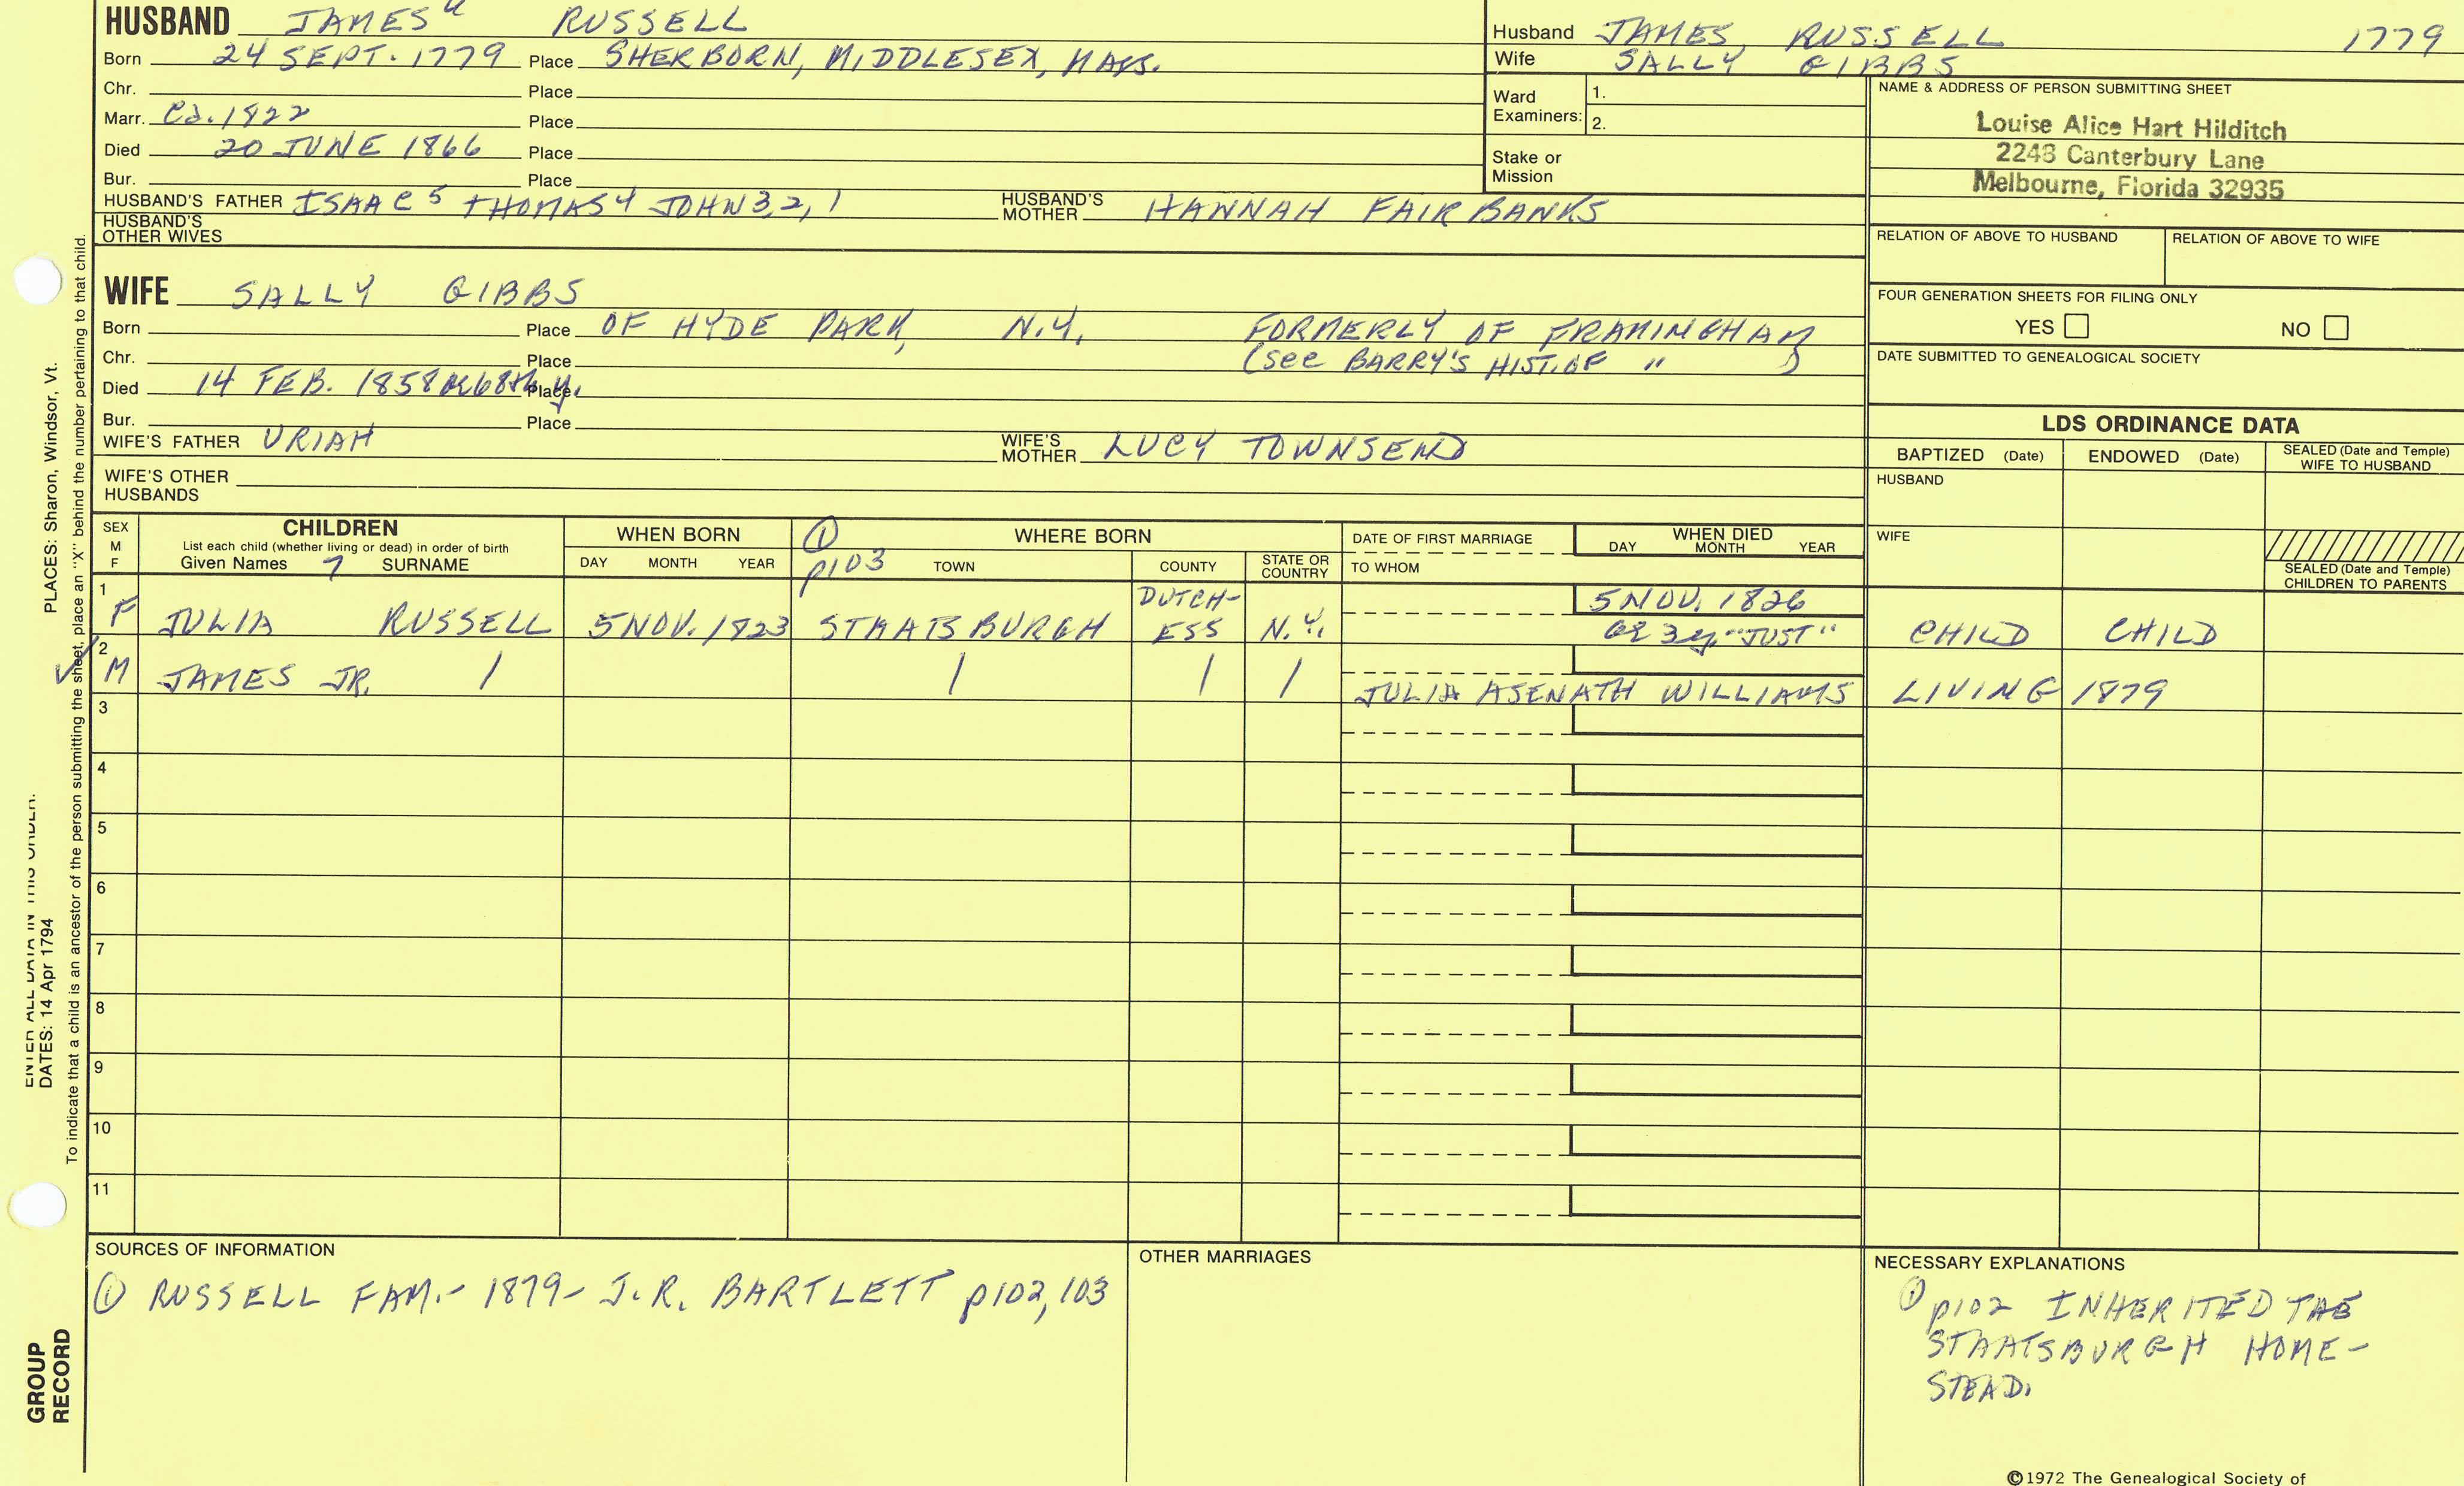 HUSBAND JAMES RUSSELL
Born 24 SEPT. 1779 Place SHERBORN, MIDDLESEX, MASS.
Chr. Place
Marr. Ca. 1822 Place
Died 20 JUNE 1866 Place
Bur. Place
HUSBAND'S FATHER ISAAC 5 THOMAS 4 JOHN 3, 2, 1 HUSBAND'S MOTHER HANNAH FAIRBANKS
HUSBAND'S OTHER WIVES
Husband JAMES RUSSELL 1779
Wife SALLY GIBBS
Ward Examiners: 1.
2.
Stake or Mission
NAME & ADDRESS OF PERSON SUBMITTING SHEET
Louise Alice Hart Hilditch
2248 Canterbury Lane
Melbourne, Florida 32935
RELATION OF ABOVE TO HUSBAND RELATION OF ABOVE TO WIFE
FOUR GENERATION SHEETS FOR FILING ONLY
YES NO
DATE SUBMITTED TO GENEALOGICAL SOCIETY
WIFE SALLY GIBBS
Born Place OF HYDE PARK, N.Y. FORMERLY OF FRAMINGHAM
Chr. Place (see BARRY'S HIST. OF " )
Died 14 FEB. 1858 Place
Bur. Place
WIFE'S FATHER URIAH WIFE'S MOTHER LUCY TOWNSEND
WIFE'S OTHER HUSBANDS
LDS ORDINANCE DATA
BAPTIZED (Date) ENDOWED (Date) SEALED (Date and Temple) WIFE TO HUSBAND
HUSBAND
WIFE
SEALED (Date and Temple) CHILDREN TO PARENTS
SEX M F
CHILDREN
List each child (whether living or dead) in order of birth
Given Names 7 SURNAME
WHEN BORN
DAY MONTH YEAR
① p103 WHERE BORN
TOWN COUNTY STATE OR COUNTRY
DATE OF FIRST MARRIAGE
TO WHOM
WHEN DIED
DAY MONTH YEAR
1 F JULIA RUSSELL 5 NOV. 1823 STAATSBURGH DUTCH-ESS N.Y. 5 NOV. 1826
ae 3 y. "JUST" CHILD CHILD
2 M JAMES JR. / / / / JULIA ASENATH WILLIAMS LIVING 1879
3
4
5
6
7
8
9
10
11
SOURCES OF INFORMATION
① RUSSELL FAM. - 1879 - J.R. BARTLETT p102, 103
OTHER MARRIAGES
NECESSARY EXPLANATIONS
① p102 INHERITED THE
STAATSBURGH HOME-
STEAD.
©1972 The Genealogical Society of
PLACES: Sharon, Windsor, Vt.
ENTER ALL DATA IN THIS ORDER:
DATES: 14 Apr 1794
To indicate that a child is an ancestor of the person submitting the sheet, place an "X" behind the number pertaining to that child.
GROUP
RECORD